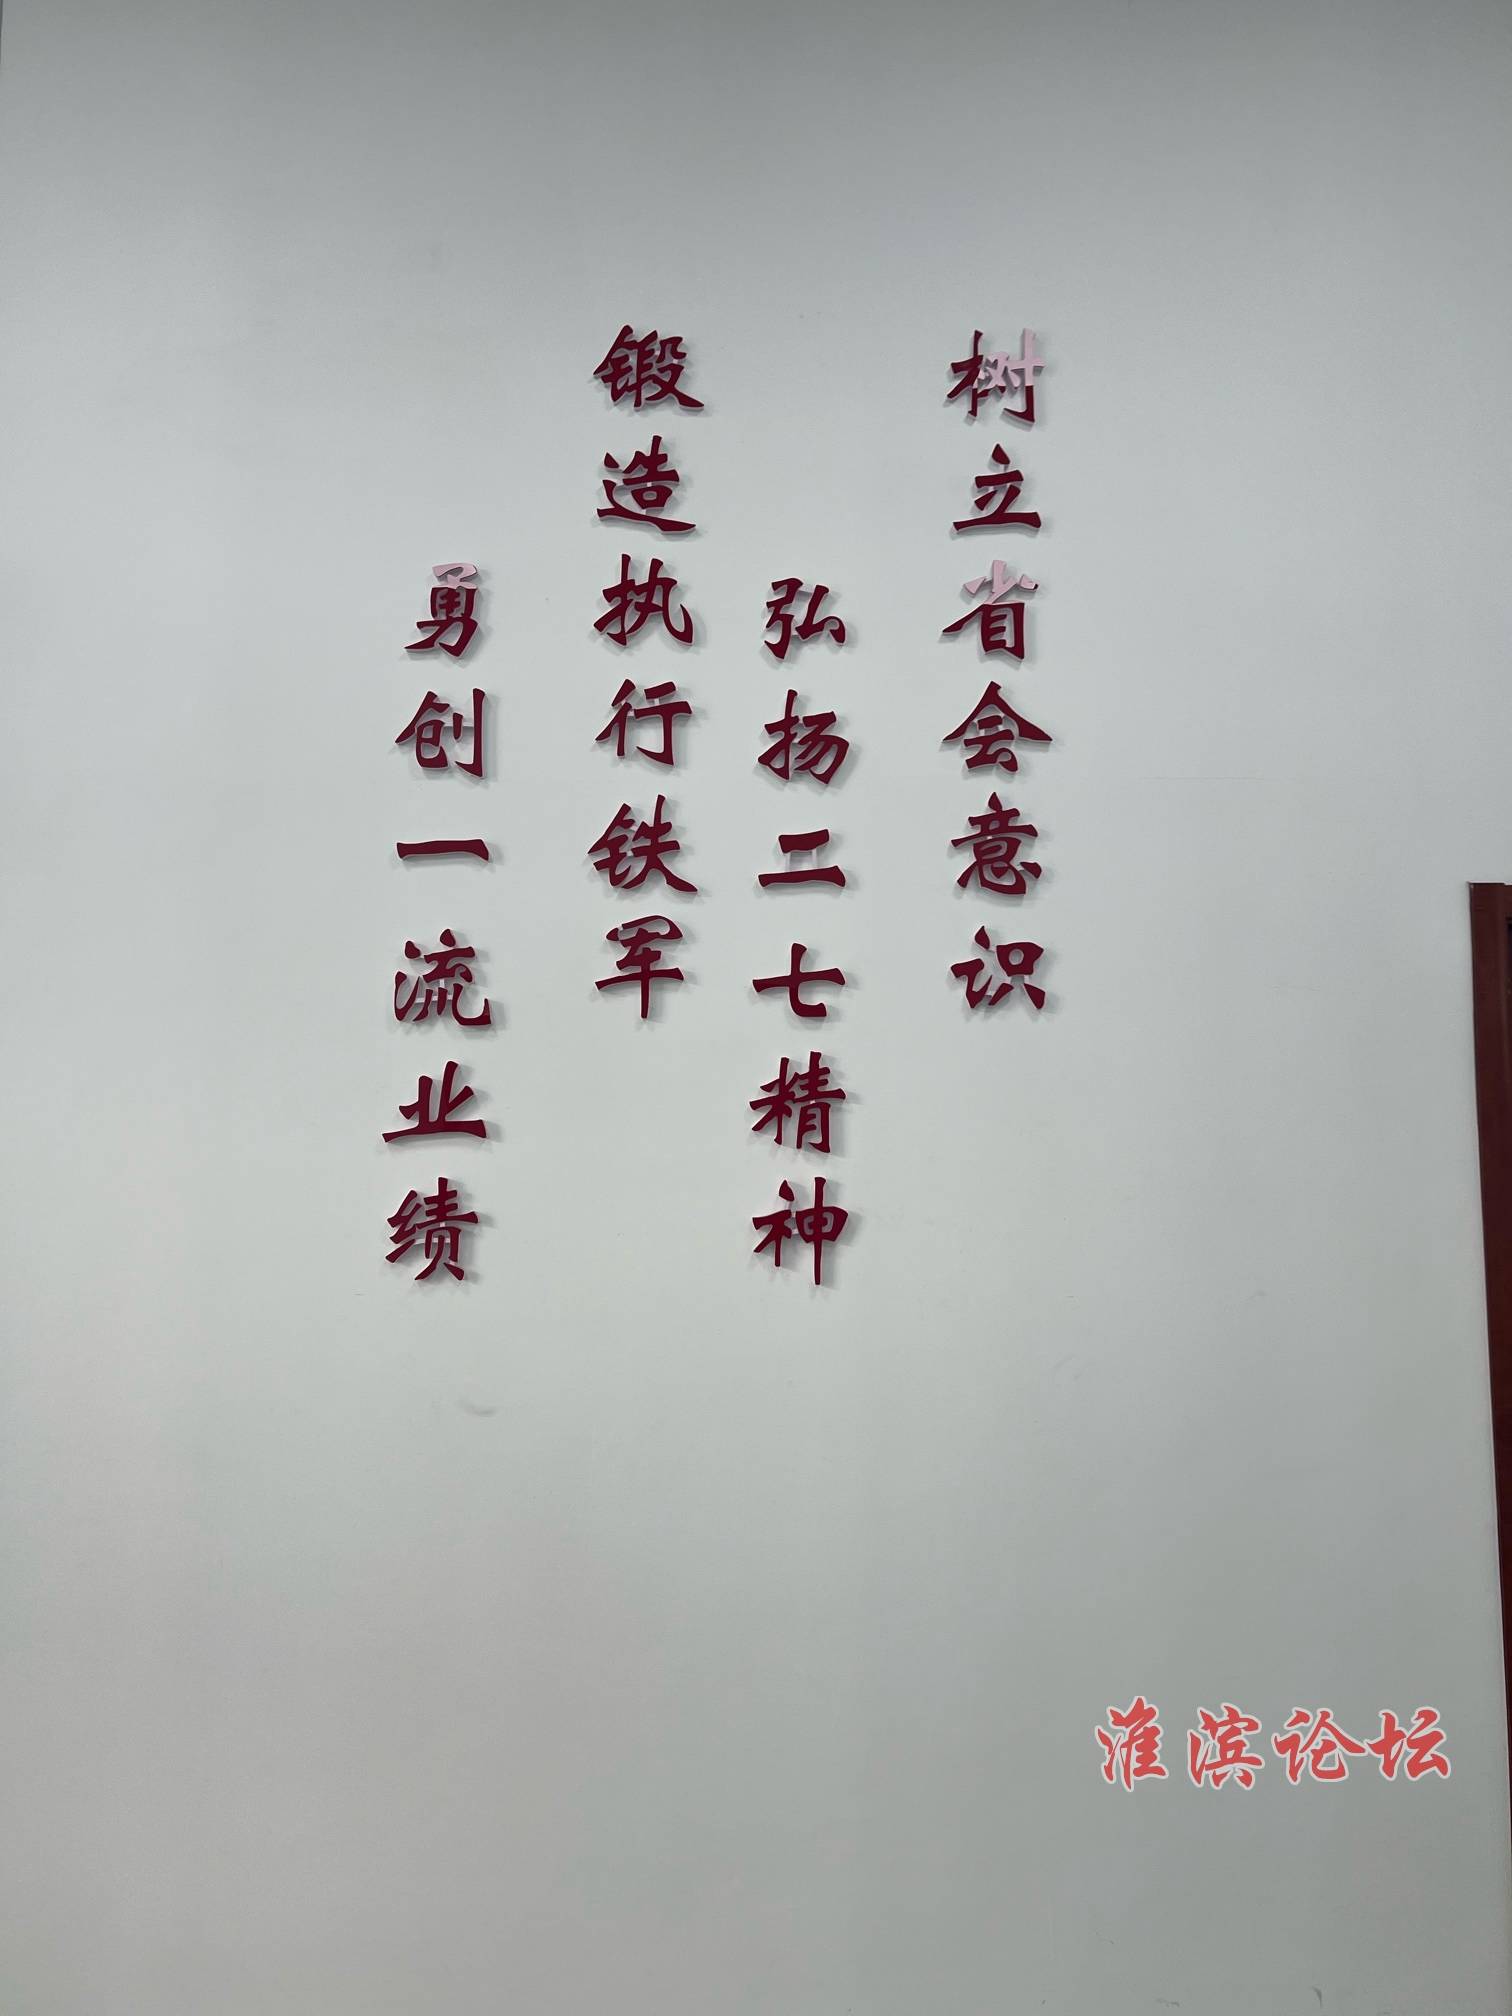 树立省会意识
弘扬二七精神
锻造执行铁军
勇创一流业绩
淮滨论坛